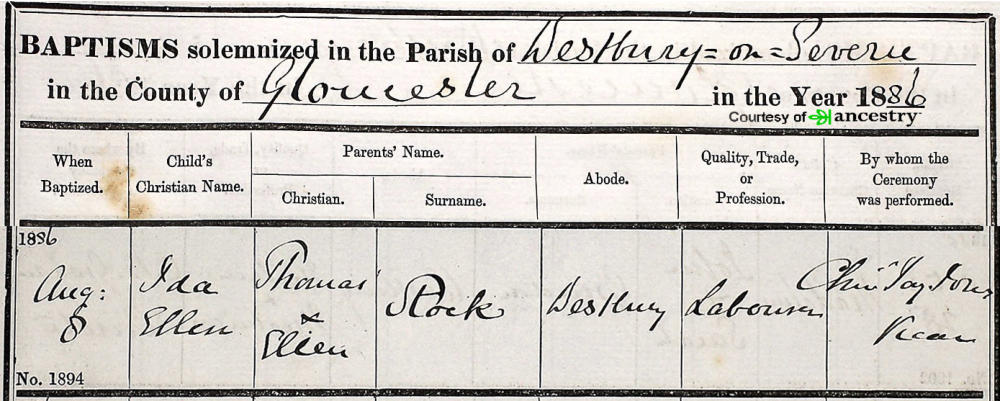 BAPTISMS solemnized in the Parish of Westbury=on=Severn
in the County of Gloucester in the Year 1886
Courtesy of ancestry
When Baptized.
Child's Christian Name.
Parents' Name.
Christian.
Surname.
Abode.
Quality, Trade, or Profession.
By whom the Ceremony was performed.
1886
Aug: 8
Ida Ellen
Thomas & Ellen
Stock
Westbury
Labourer
Vicar
No. 1894